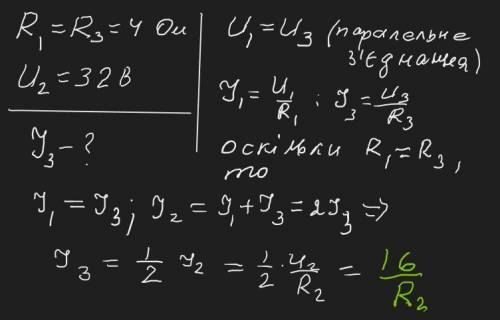 R₁ = R₃ = 4 Ом
U₂ = 32 В
I₃ - ?
U₁ = U₃ (паралельне
з'єднання)
I₁ = U₁/R₁ ; I₃ = U₃/R₃
оскільки R₁ = R₃,
то
I₁ = I₃; I₂ = I₁ + I₃ = 2I₃ =>
I₃ = 1/2 I₂ = 1/2 · U₂/R₂ = 16/R₂